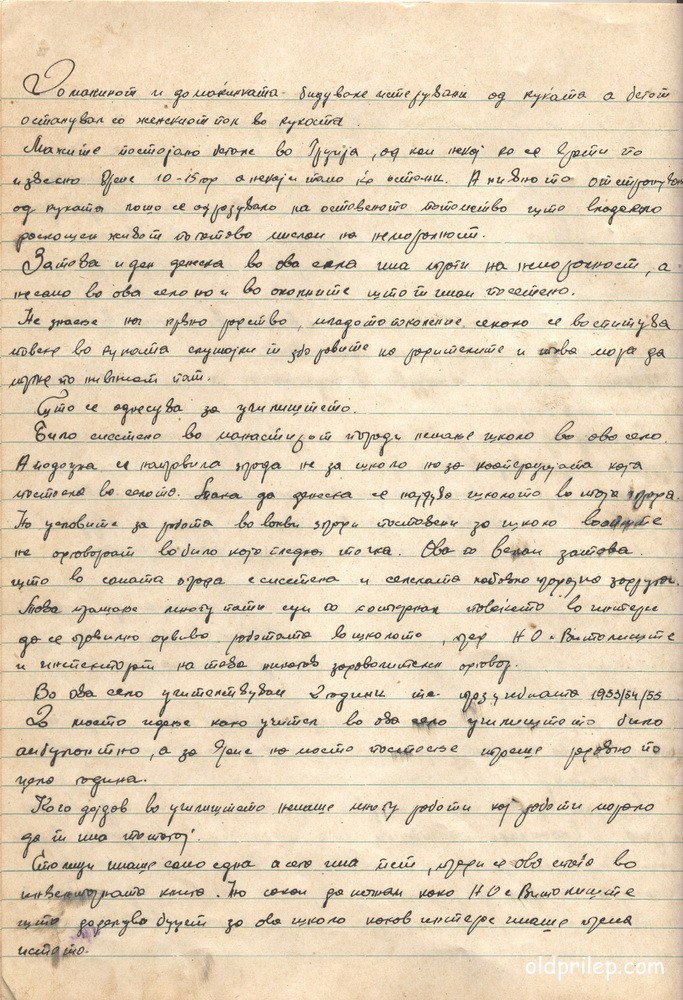 Домаќинот и домаќинката бидувале истерувани од куќата а бегот
останувал со женскиот пол во куќата.
Мажите постојано бегале во Грција, од кои некој ќе се врати по
извесно време 10-15 год а некој и тамо ќе остани. А нивното отстранување
од куќата лошо се одразувало на останатото потомство што владеело
раскошен живот по готово мислам на неморалност.
Затова и ден денеска во ова село има траги на неморалност, а
не само во ова село но и во околните што ги имам посетено.
Не знаење на крвно родство, младото поколение секако се воспитува
повеќе во куќата слушајќи ги зборовите на родителите и това мора да
тргне по нивниот пат.
Што се однесува за училиштето.
Било сместено во манастирот поради немање школо во ова село.
А подоцна се направила зграда не за школо но за кооперацијата која
постоела во селото. Така да денеска се најдува школото во таја зграда.
Но условите за работа во вакви згради поставени за школо воопште
не одговараат во било која гледна точка. Ова го велам затова
што во самата зграда е сместена и селската набавно продажна задруга.
Това прашање многу пати сум го контирнал повеќето во интерес
да се правилно одвива работата во школото, пред Н О - Витолиште
и инспекторот на това никогаш задоволителен одговор.
Во ова село учителствувам 2 години т.е. през учебната 1953/54/55
До моето идење како учител во ова село училиштето било
амбулантно, а за време на моето постоење имаше редовно по
цела година.
Кога дојдов во училиштето немаше многу работи кој работи морало
да ги има постојај.
Столици имаше само една а сега има пет, поради се ова става во
инвентарната книга. Но сакам да истакнам како Н О с Витолиште
што доделува буџет за ова школо каков интерес имаше према
истото.
oldprilep.com